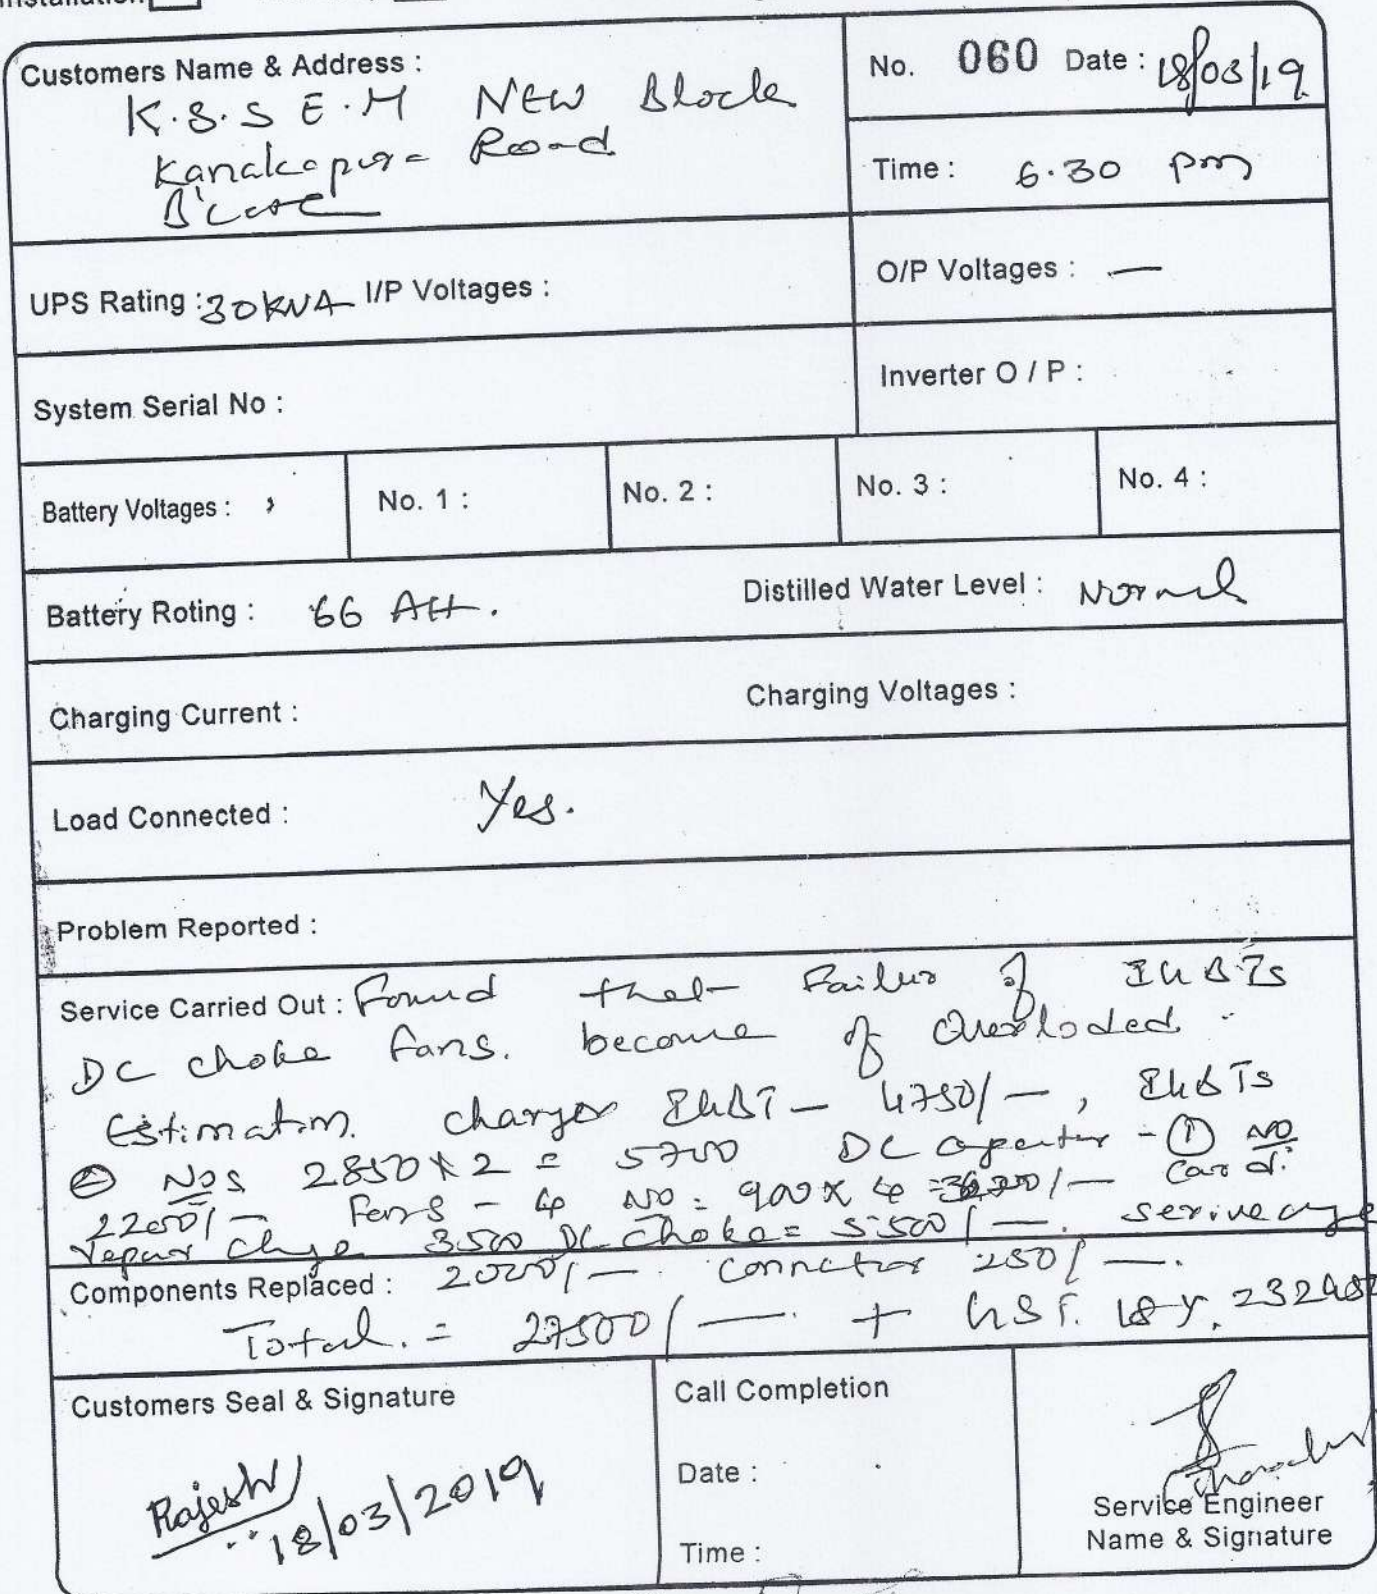 Customers Name & Address :
K.S.S E.M NEW Block
Kanakapura Road
B'lore
No. 060 Date : 18/03/19
Time : 6.30 pm
UPS Rating : 30KVA I/P Voltages :
O/P Voltages : —
System Serial No :
Inverter O / P :
Battery Voltages :
No. 1 :
No. 2 :
No. 3 :
No. 4 :
Battery Roting : 66 AH.
Distilled Water Level : Normal
Charging Current :
Charging Voltages :
Load Connected : Yes.
Problem Reported :
Service Carried Out : Found that Failur of IGBTs
DC choke fans. become of Overloded
Estimation charges IGBT – 4750/–, IGBTs
② Nos 2850x2 = 5700 DC – ① NO
2200/– Fans – 4 NO = 900x4 = /– Card.
repair 3500 DC choke = 5500/–.
Components Replaced : 2000/– 250/–.
Total. = 27500/– + GST. 18%.
Customers Seal & Signature
Rajesh
18/03/2019
Call Completion
Date :
Time :
Service Engineer
Name & Signature